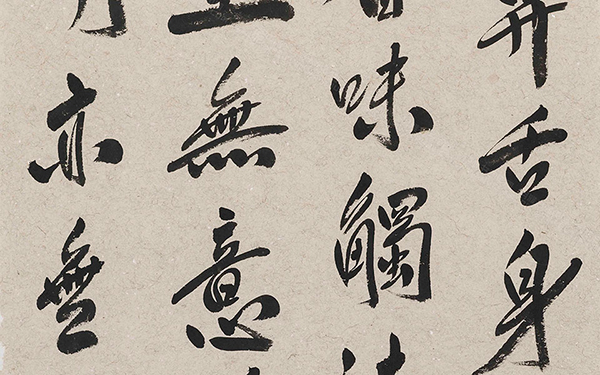 鼻舌身
味觸
至無意
亦無